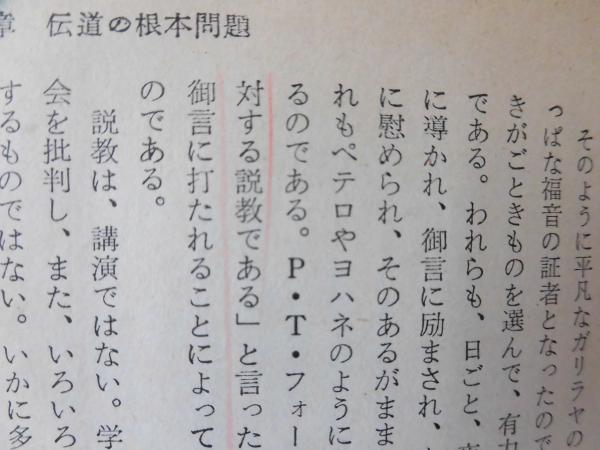 章 伝道の根本問題
そのように平凡なガリラヤの
っぱな福音の証者となったので
きがごときものを選んで、有力
である。われらも、日ごと、
に導かれ、御言に励まされ、
に慰められ、そのあるがまま
れもペテロやヨハネのように
るのである。P・T・フォー
対する説教である」と言った
御言に打たれることによって
のである。
説教は、講演ではない。学
会を批判し、また、いろいろ
するものではない。いかに多